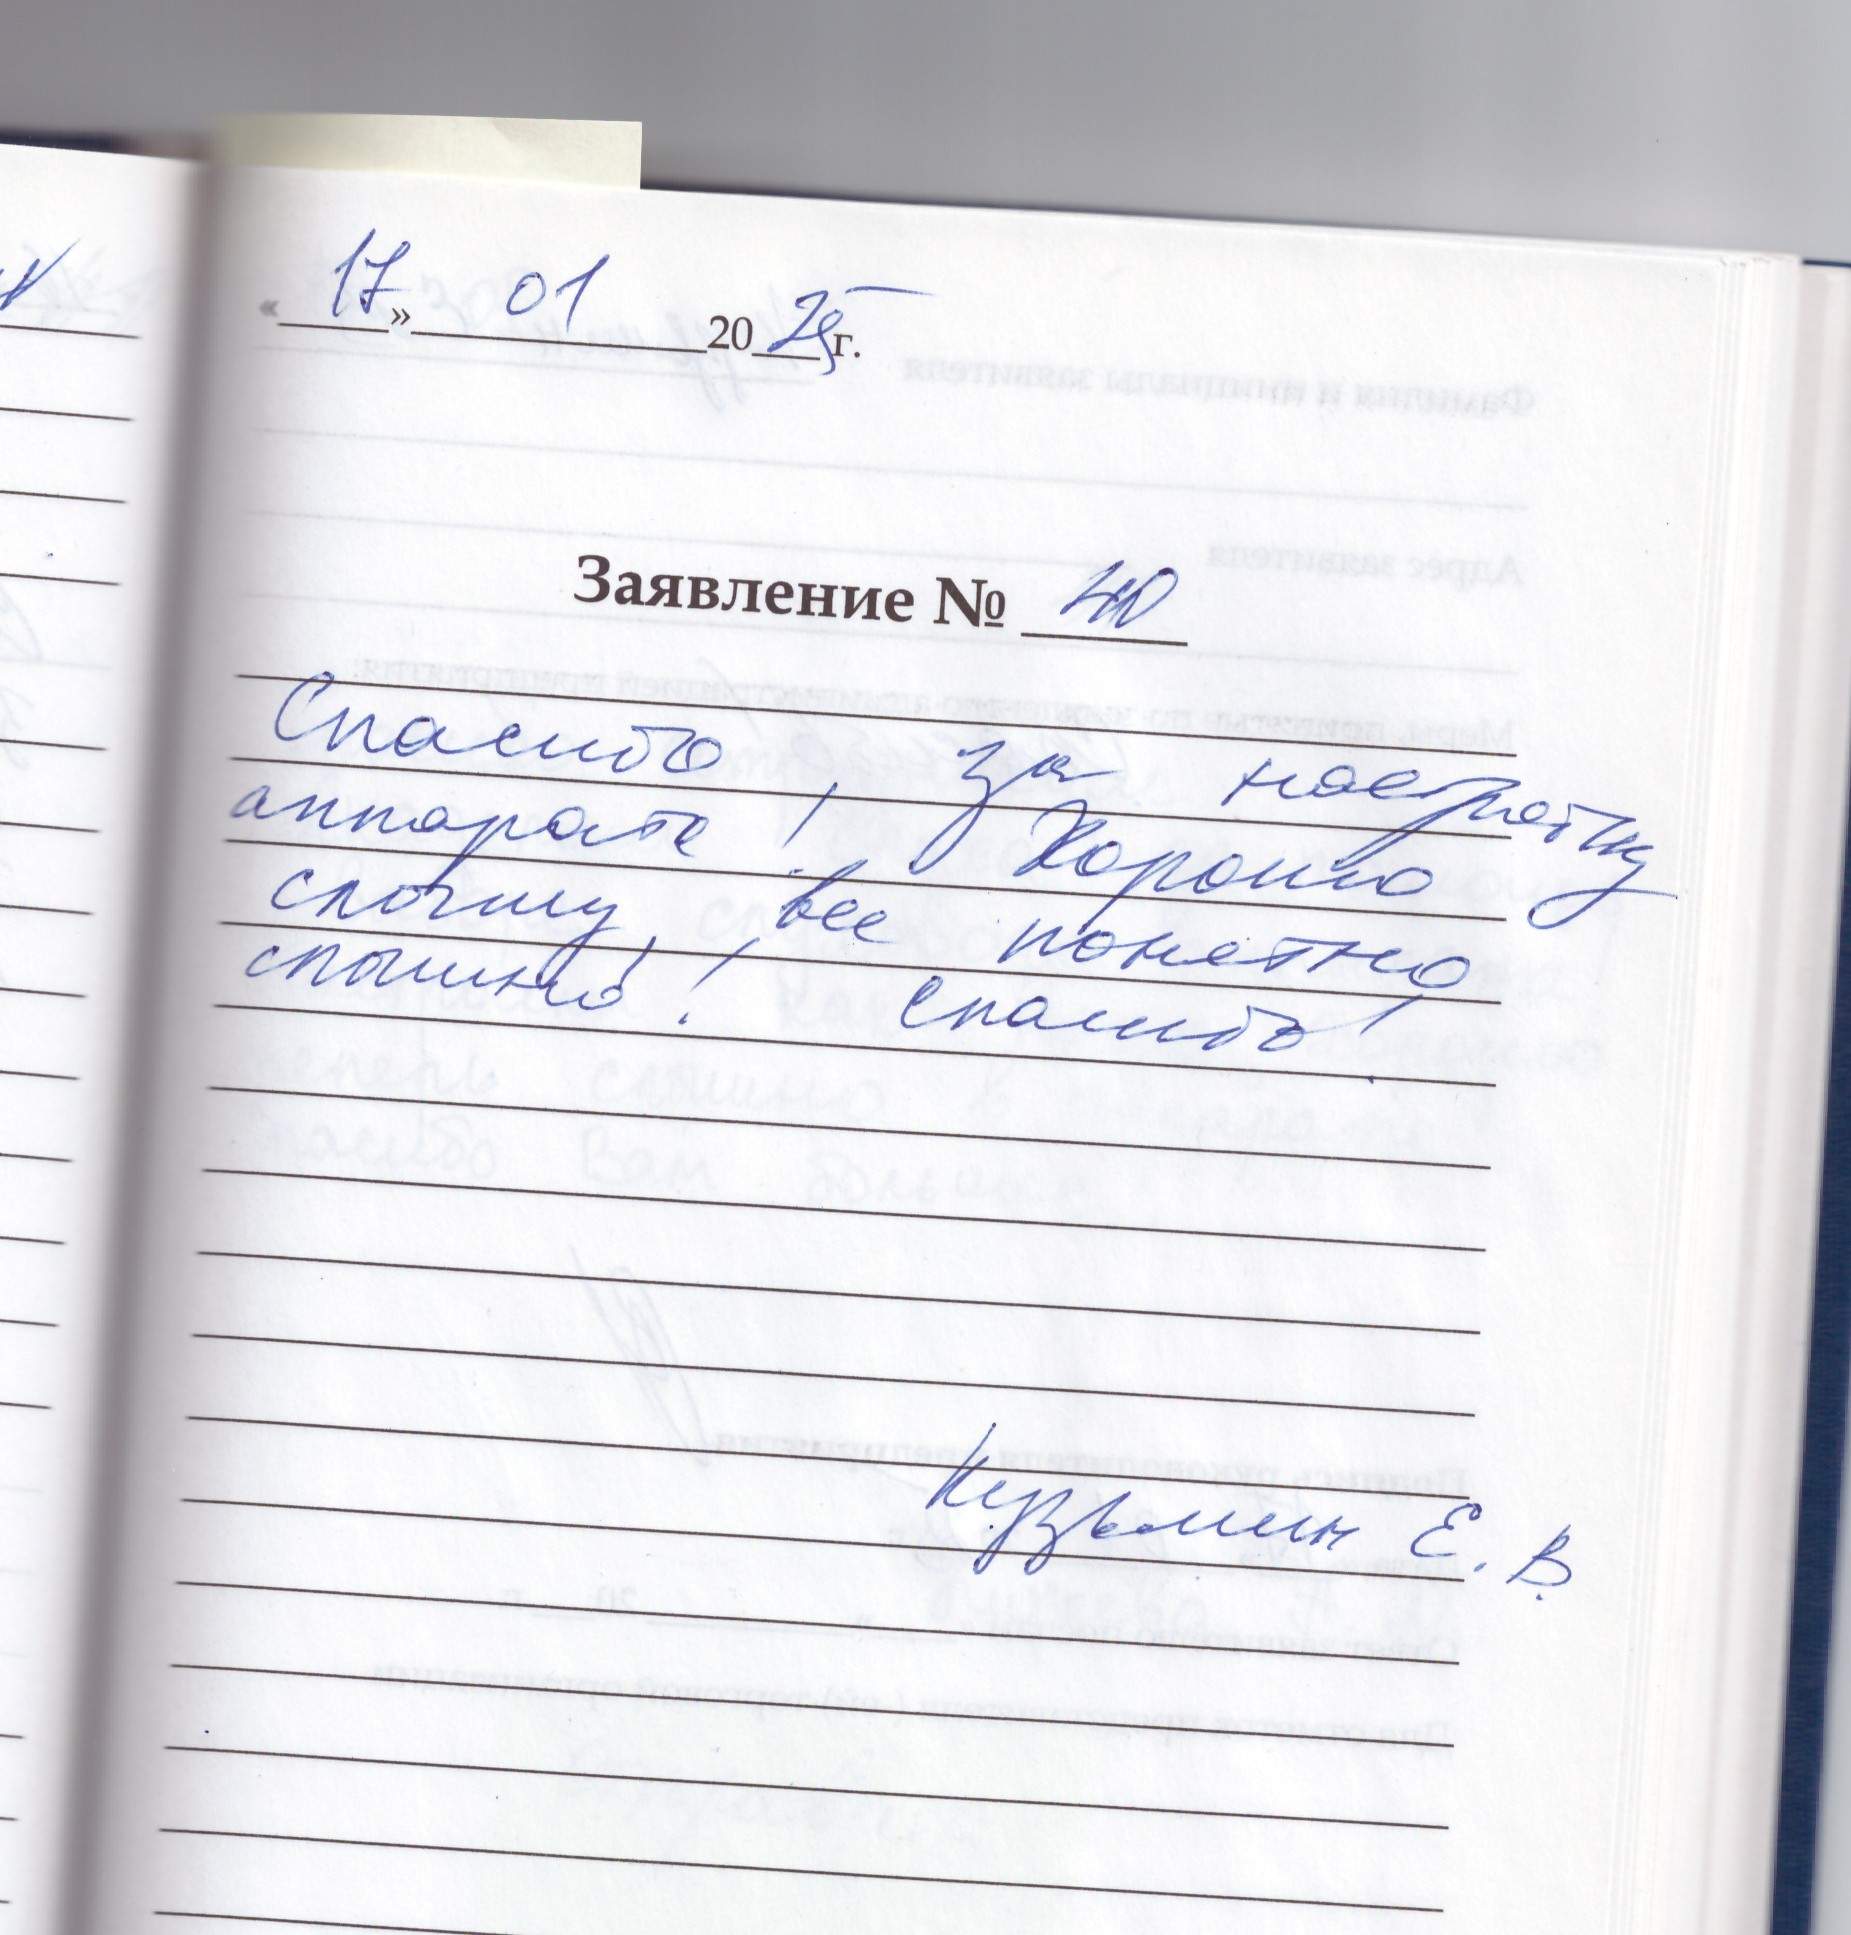 «17» 01 2025 г.
Заявление № 40
Спасибо за настройку
аппарата! Хорошо
слышу все понятно
слышно! Спасибо!
Кузьмин Е. В.